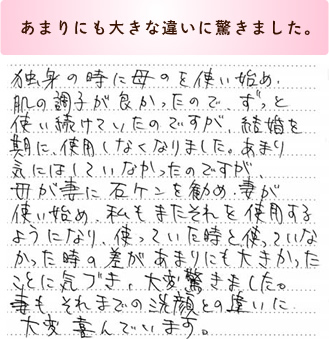 あまりにも大きな違いに驚きました。
独身の時に母のを使い始め、
肌の調子が良かったので、ずっと
使い続けていたのですが、結婚を
期に、使用しなくなりました。あまり
気にはしていなかったのですが、
母が妻に石ケンを勧め、妻が
使い始め、私もまたそれを使用する
ようになり、使っていた時と使っていな
かった時の差があまりにも大きかった
ことに気づき、大変驚きました。
妻も、それまでの洗顔との違いに
大変喜んでいます。